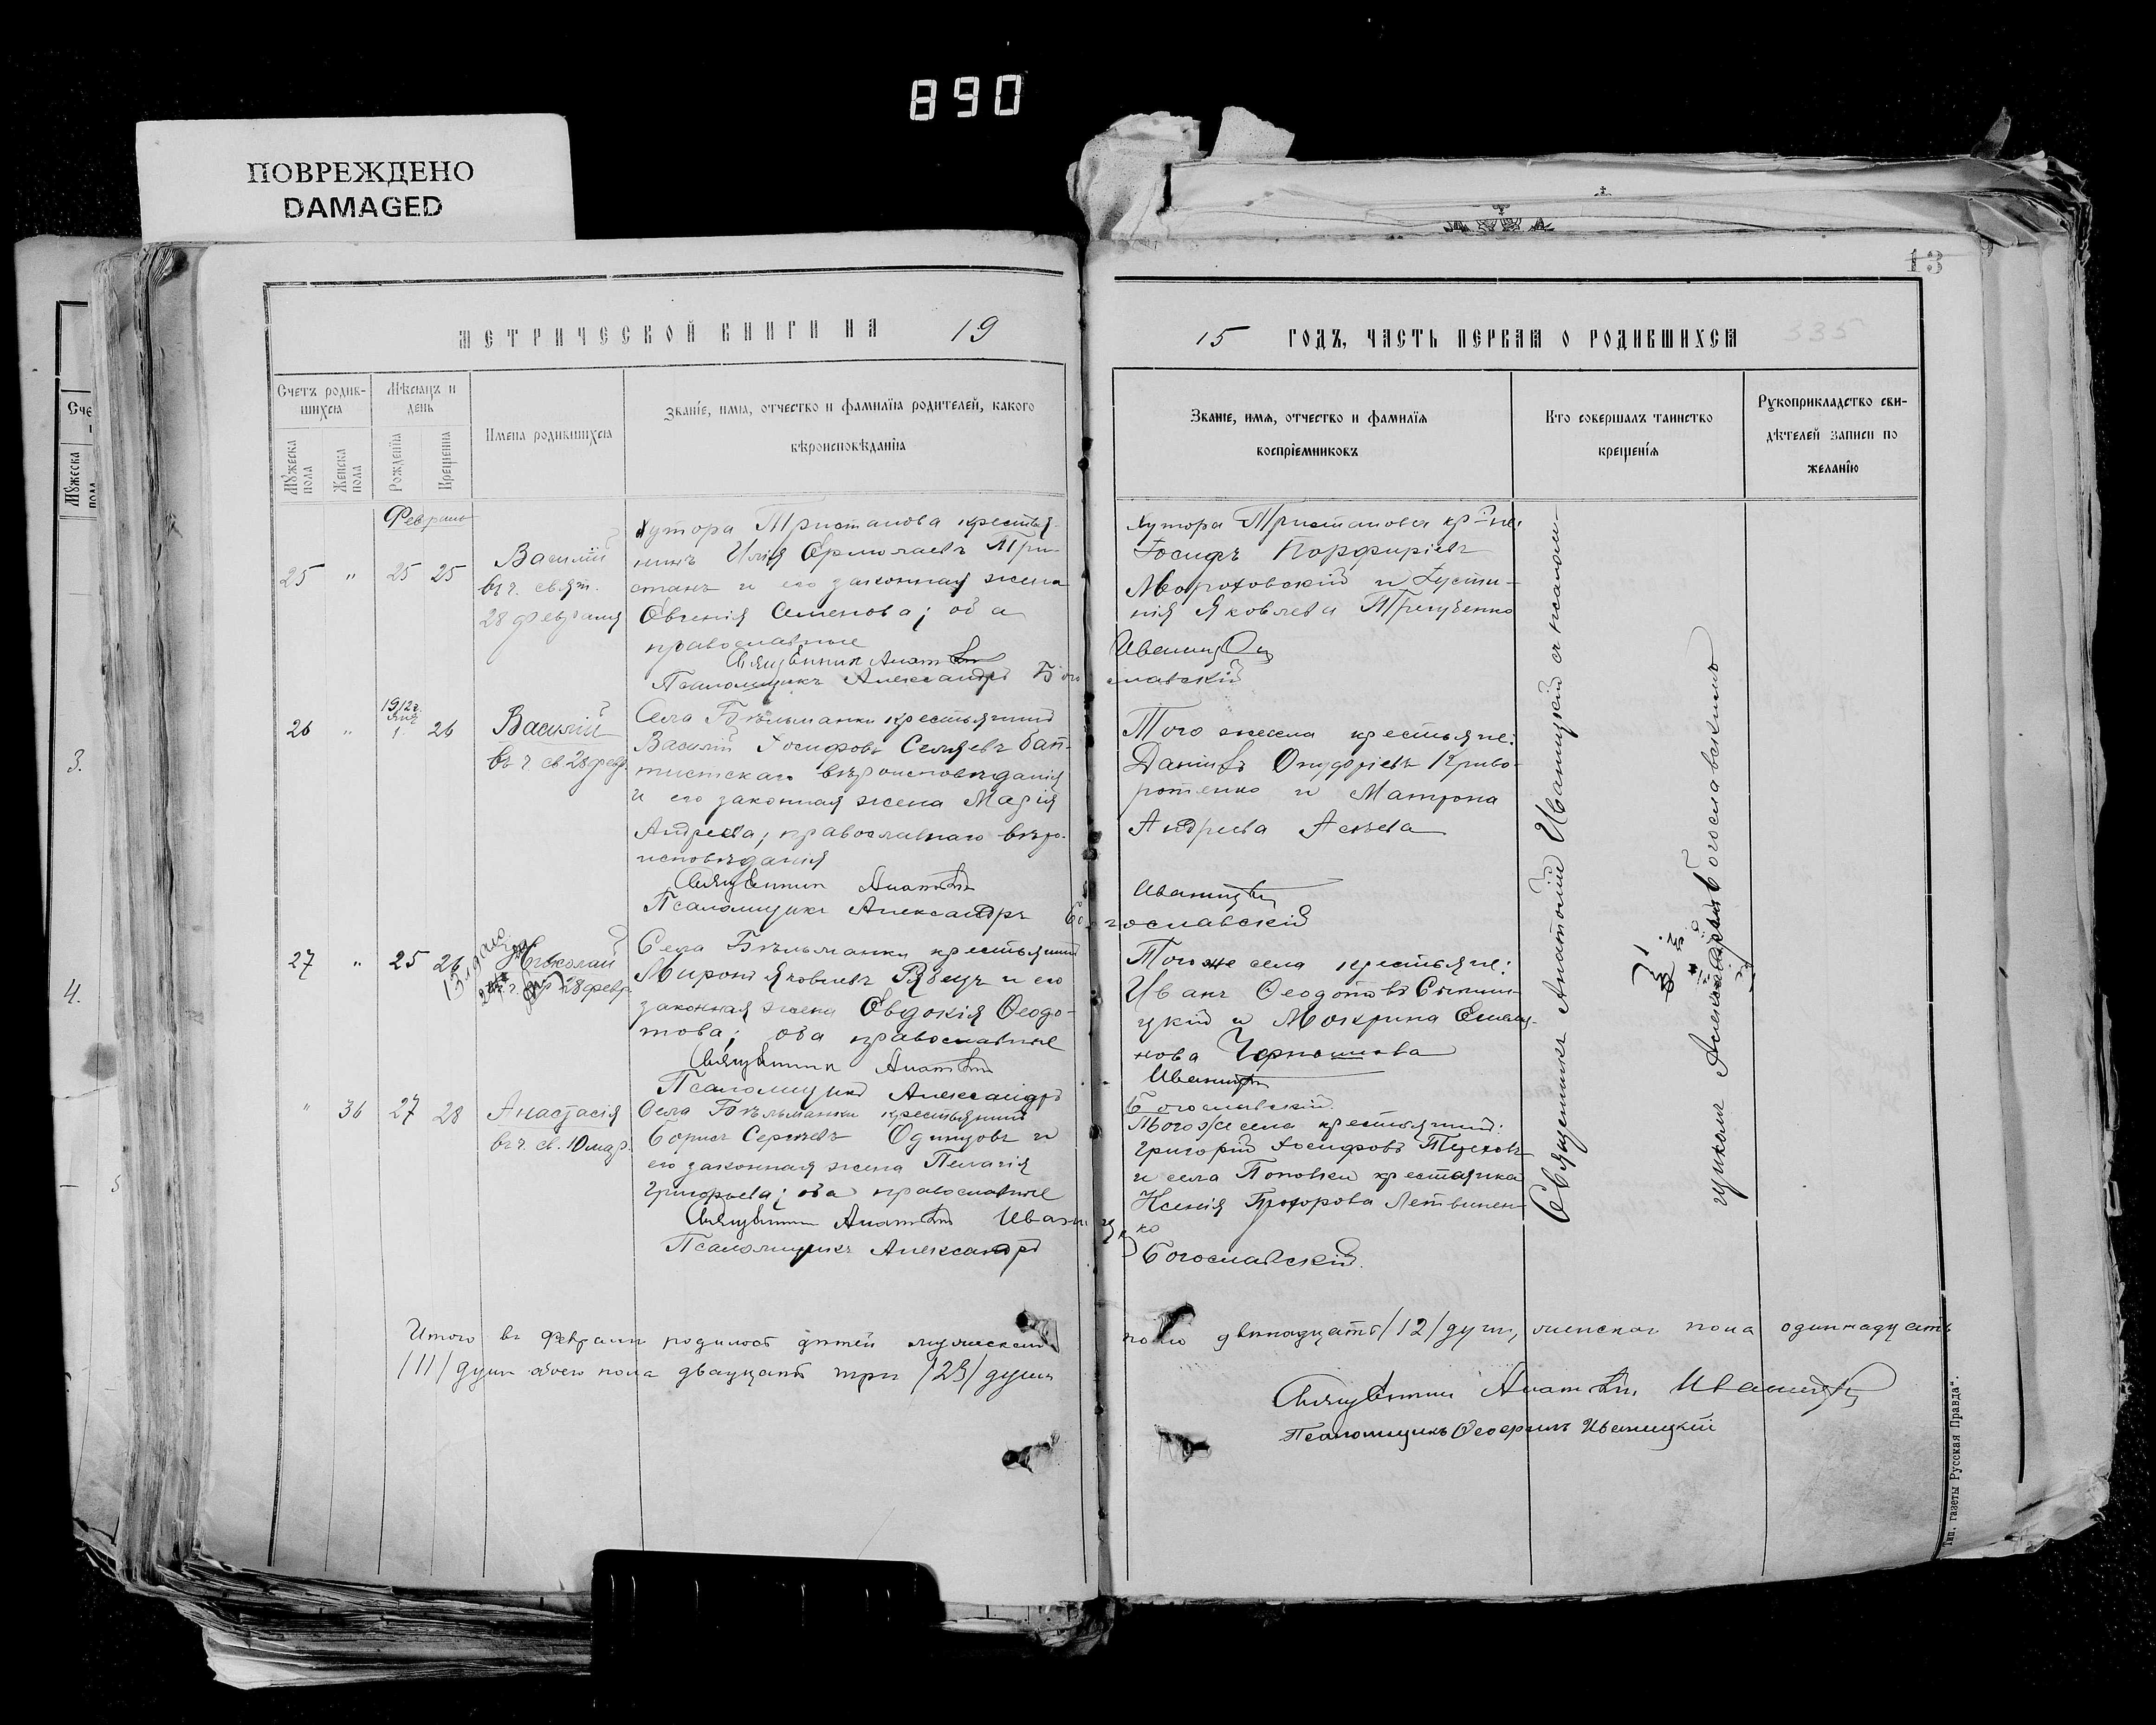 890
ПОВРЕЖДЕНО
DAMAGED
13
МЕТРИЧЕСКОЙ КНИГИ НА 19
15 ГОДЪ, ЧАСТЬ ПЕРВАЯ О РОДИВШИХСЯ 335
Счетъ родив-
шихся
Мужеска пола
Женска пола
Мѣсяцъ и
день
Рожденія
Крещенія
Имена родившихся
Званіе, имя, отчество и фамилія родителей, какого
вѣроисповѣданія
Званіе, имя, отчество и фамилія
воспріемниковъ
Кто совершалъ таинство
крещенія
Рукоприкладство сви-
дѣтелей записи по
желанію
Февраль
25 " 25 25
Василій
въ ч. свят.
28 февраля
Хутора Тристанова крестья-
нинъ Илія Ермолаевъ Три-
станъ и его законная жена
Евгенія Семенова; оба
православные
Священникъ Анатолій
Псаломщикъ Александръ Бого
Хутора Тристанова кр-не:
Іосифъ Порфиріевъ
Мороховскій и Іусти-
нія Яковлева
Иваницкій
славскій
26 " 1912г. 1 26
Василій
въ ч. св. 28 февр.
Села Бѣльманки крестьянинъ
Василій Іосифовъ Селяевъ бап-
тистскаго вѣроисповѣданія
и его законная жена Марія
Андреева, православнаго вѣро-
исповѣданія
Священникъ Анатолій
Псаломщикъ Александръ Бо
Того же села крестьяне:
Даніилъ Онуфріевъ Криво-
ротенко и Матрона
Андреева
Иваницкій
гославскій
27 " 25 26
Николай
28 февр.
Села Бѣльманки крестьянинъ
Миронъ Яковлевъ и его
законная жена Евдокія Феодо-
това; оба православные
Священникъ Анатолій
Псаломщикъ Александръ
Того же села крестьяне:
Иванъ Феодотовъ
цкій и Мокрина Емелья-
нова
Иваницкій
Богославскій.
" 36 27 28
Анастасія
въ ч. св. 10 мар.
Села Бѣльманки крестьянинъ
Борисъ Сергѣевъ Одинцовъ и
его законная жена Пелагія
Григорьева; оба православные
Священникъ Анатолій Иваницкій
Псаломщикъ Александръ
Того же села крестьянинъ:
Григорій Іосифовъ
и села Поповки крестьянка
Ксенія Прохорова Летвинен-
ко
Богославскій.
Священникъ Анатолій Иваницкій съ псалом-
щикомъ Александромъ Богославскимъ
Итого въ Февралѣ родилось дѣтей мужескаго пола двѣнадцать /12/ душъ, женскаго пола одиннадцать
/11/ душъ обоего пола двадцать три /23/ души
Священникъ Анатолій Иваницкій
Псаломщикъ Феофилъ Иваницкій
Тип. газеты Русская Правда".
3.
4.